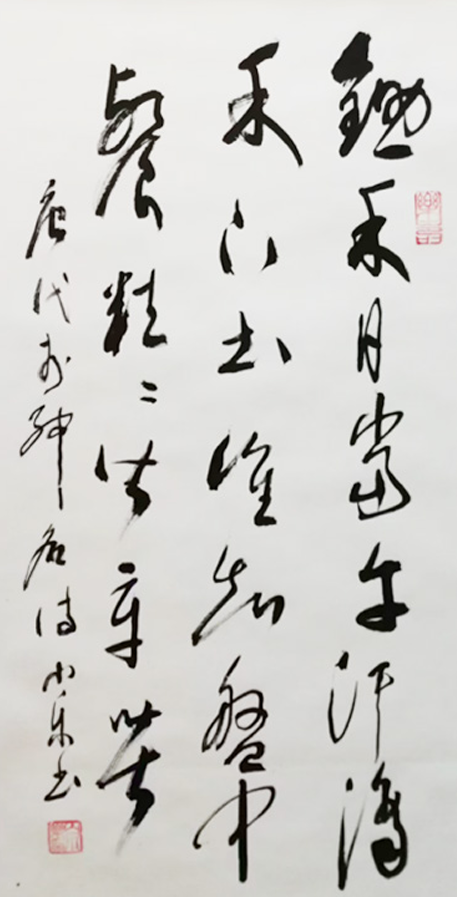 鋤禾日當午汗滴
禾下土誰知盤中
餐粒〻皆辛苦
唐代李紳名詩 小乐书